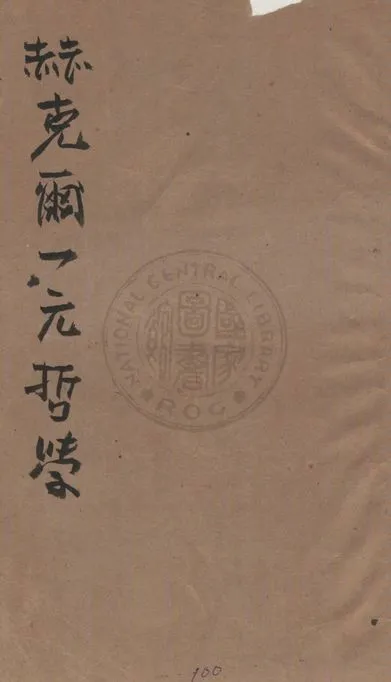 赫克爾一元哲學
NATIONAL CENTRAL LIBRARY
ROC
100